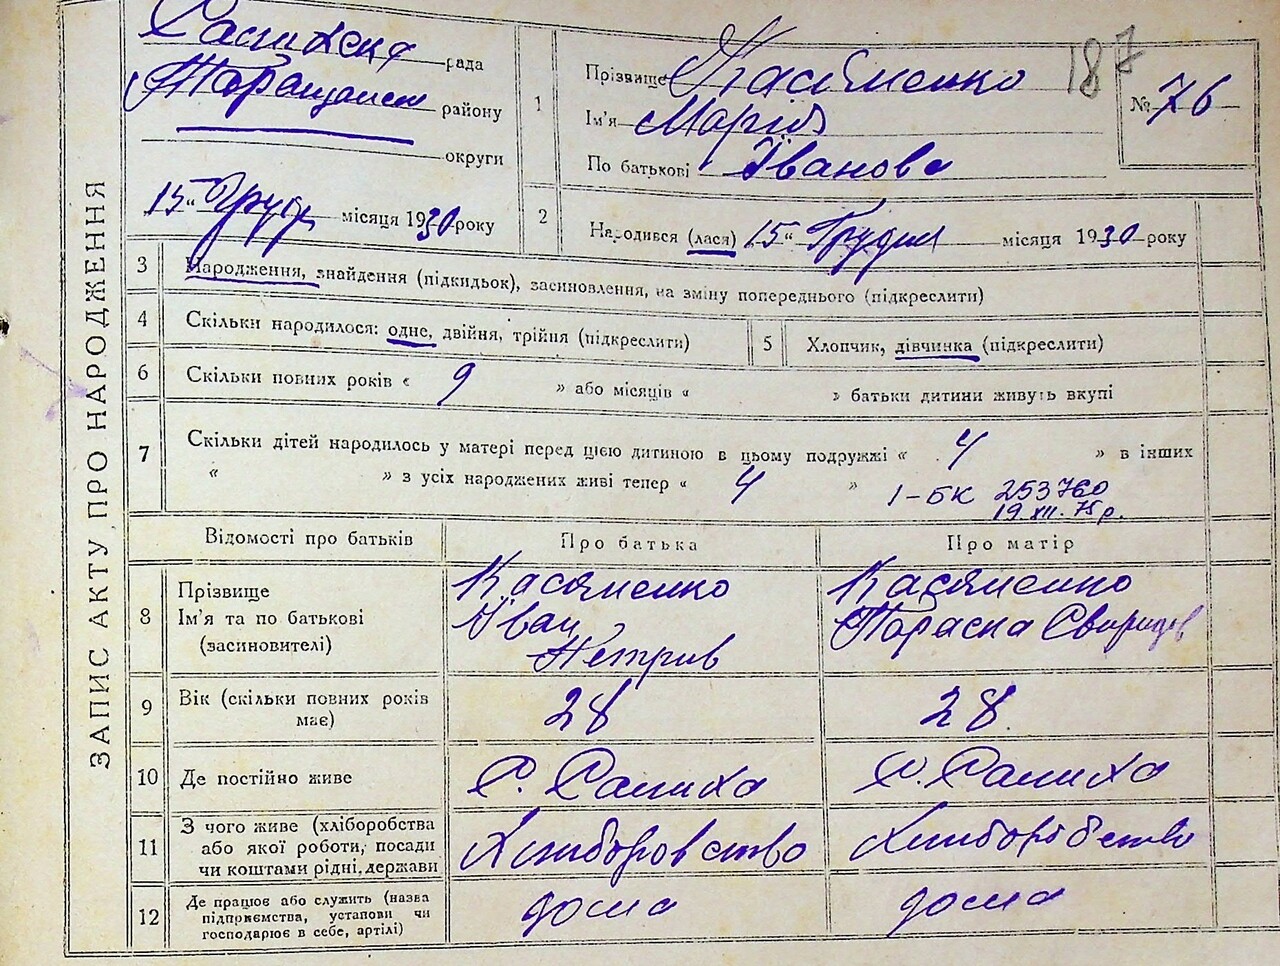 ЗАПИС АКТУ ПРО НАРОДЖЕННЯ
рада
району
округи
15 " Грудн місяця 1930 року
187
№ 76
1 Прізвище Касяненко
Ім'я Марія
По батькові Іванова
2 Народився (лася) 15 " Грудня місяця 1930 року
3 Народження, знайдення (підкидьок), засиновлення, на зміну попереднього (підкреслити)
4 Скільки народилося: одне, двійня, трійня (підкреслити)
5 Хлопчик, дівчинка (підкреслити)
6 Скільки повних років « 9 » або місяців « » батьки дитини живуть вкупі
7 Скільки дітей народилось у матері перед цією дитиною в цьому подружжі « 4 » в інших
« » з усіх народжених живі тепер « 4 »
1-БК 253760
19 XII. 75 р.
Відомості про батьків Про батька Про матір
8 Прізвище Касяненко Касяненко
Ім'я та по батькові Іван Параска
(засиновителі) Петрів
9 Вік (скільки повних років 28 28
має)
10 Де постійно живе С. Салиха С. Салиха
11 З чого живе (хліборобства
або якої роботи, посади Хліборобство Хліборобство
чи коштами рідні, держави
12 Де працює або служить (назва
підприємства, установи чи дома дома
господарює в себе, артілі)